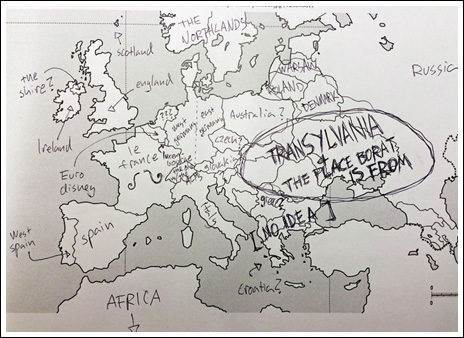 THE
NORTHLANDS
?
scotland
the
shire?
england
Ireland
WARSAW
POLAND
DENMARK
Russia
???
west
germany
east
germany
Australia?
Czech
le
france
Euro
disney
TRANSYLVANIA
&
THE PLACE BORAT
IS FROM
West
spain
spain
Italy
greece
[NO IDEA]
Croatia?
AFRICA
0